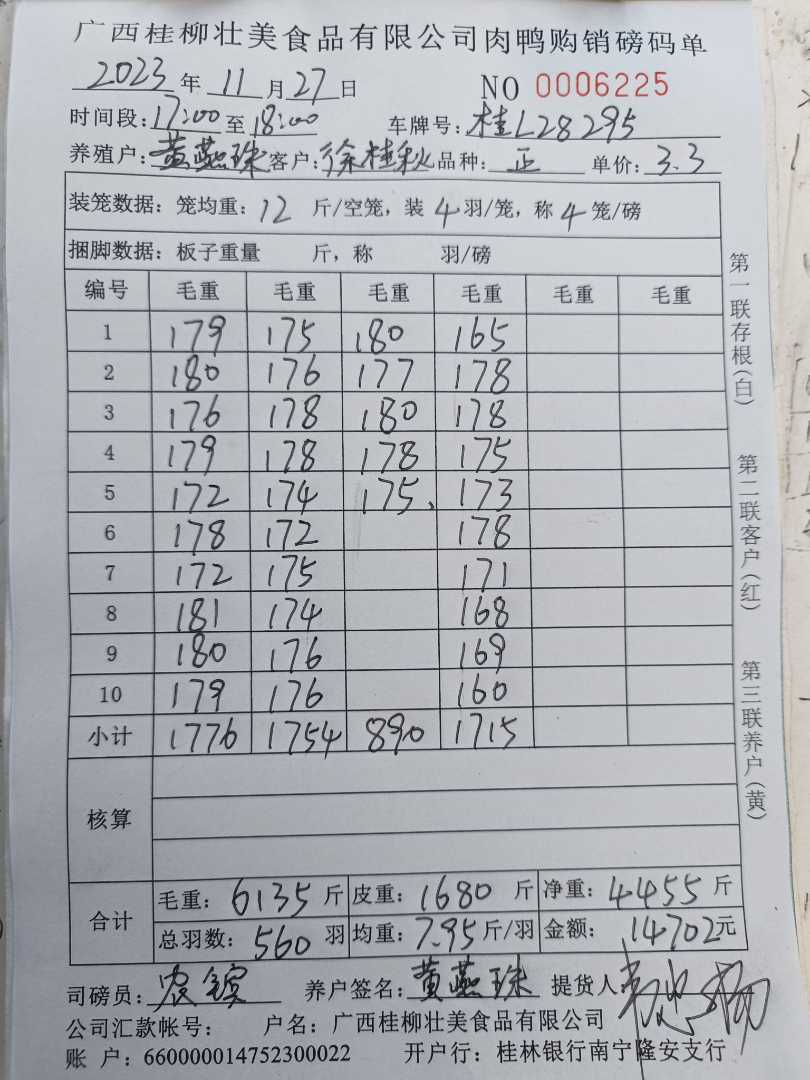 广西桂柳壮美食品有限公司肉鸭购销磅码单
2023 年 11 月 27 日 NO 0006225
时间段: 17:00 至 18:00 车牌号: 桂L28295
养殖户: 黄燕珠 客户: 徐桂秋 品种: 正 单价: 3.3
装笼数据: 笼均重: 12 斤/空笼, 装 4 羽/笼, 称 4 笼/磅
捆脚数据: 板子重量 斤, 称 羽/磅
编号 毛重 毛重 毛重 毛重 毛重 毛重
1 179 175 180 165
2 180 176 177 178
3 176 178 180 178
4 179 178 178 175
5 172 174 175、 173
6 178 172 178
7 172 175 171
8 181 174 168
9 180 176 169
10 179 176 160
小计 1776 1754 890 1715
核算
合计
毛重: 6135 斤 皮重: 1680 斤 净重: 4455 斤
总羽数: 560 羽 均重: 7.95 斤/羽 金额: 14702 元
司磅员: 农 养户签名: 黄燕珠 提货人
公司汇款帐号: 户名: 广西桂柳壮美食品有限公司
账 户: 660000014752300022 开户行: 桂林银行南宁隆安支行
第一联存根(白)
第二联客户(红)
第三联养户(黄)